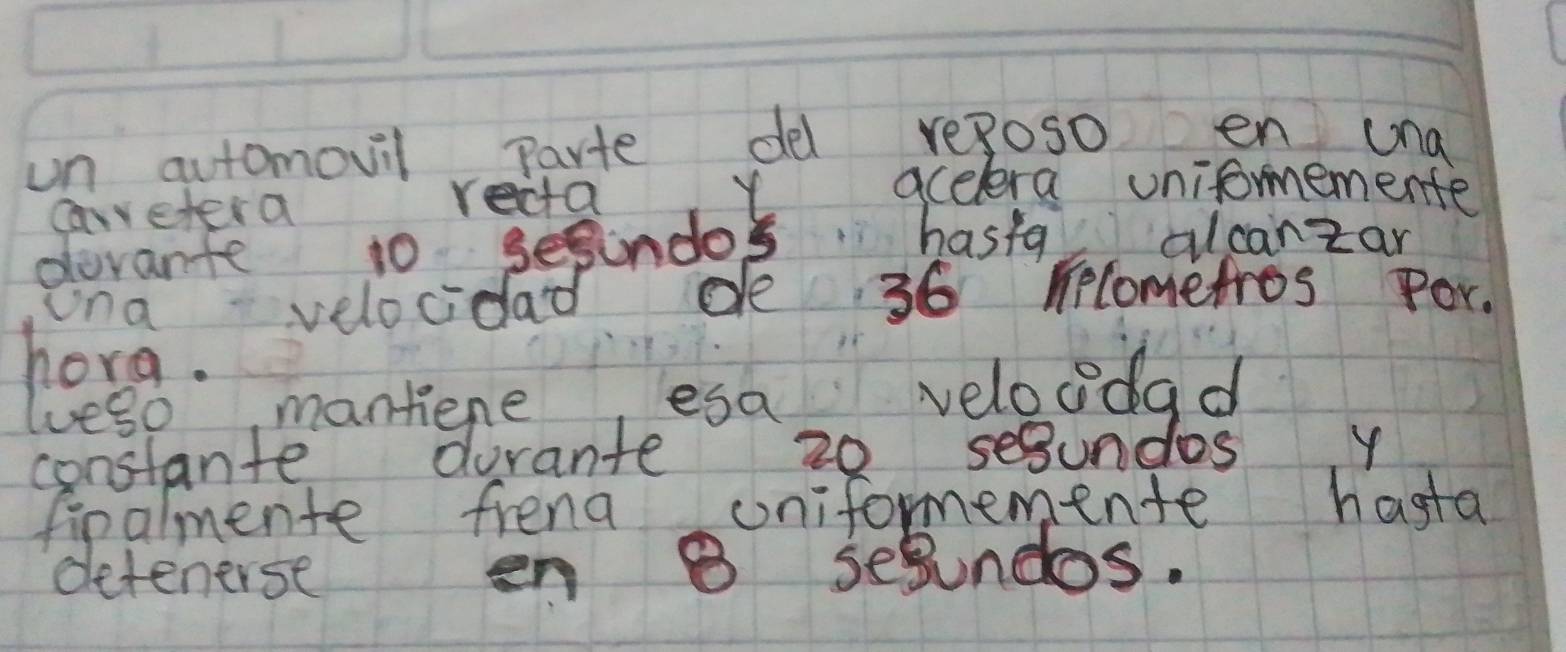 un automovil Parte del reposo en una
carretera recta y acelera uniformemente
durante 10 segundos hasta alcanzar
una velocidad de 36 kilometros Por.
hora.
luego mantiene esa velocidad
constante durante 20 segundos y
finalmente frena uniformemente hasta
detenerse en 8 segundos.